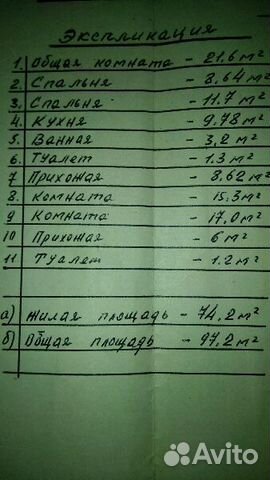 Экспликация
1. Общая комната - 21.6 м²
2. Спальня - 8,64 м²
3. Спальня - 11.7 м²
4. Кухня - 9.78 м²
5. Ванная - 3,2 м²
6. Туалет - 1.3 м²
7 Прихожая - 8,62 м²
8. Комната - 15.3 м²
9 Комната - 17.0 м²
10 Прихожая - 6 м²
11 Туалет - 1.2 м²
а) Жилая площадь - 74,2 м²
б) Общая площадь - 97.2 м²
Avito